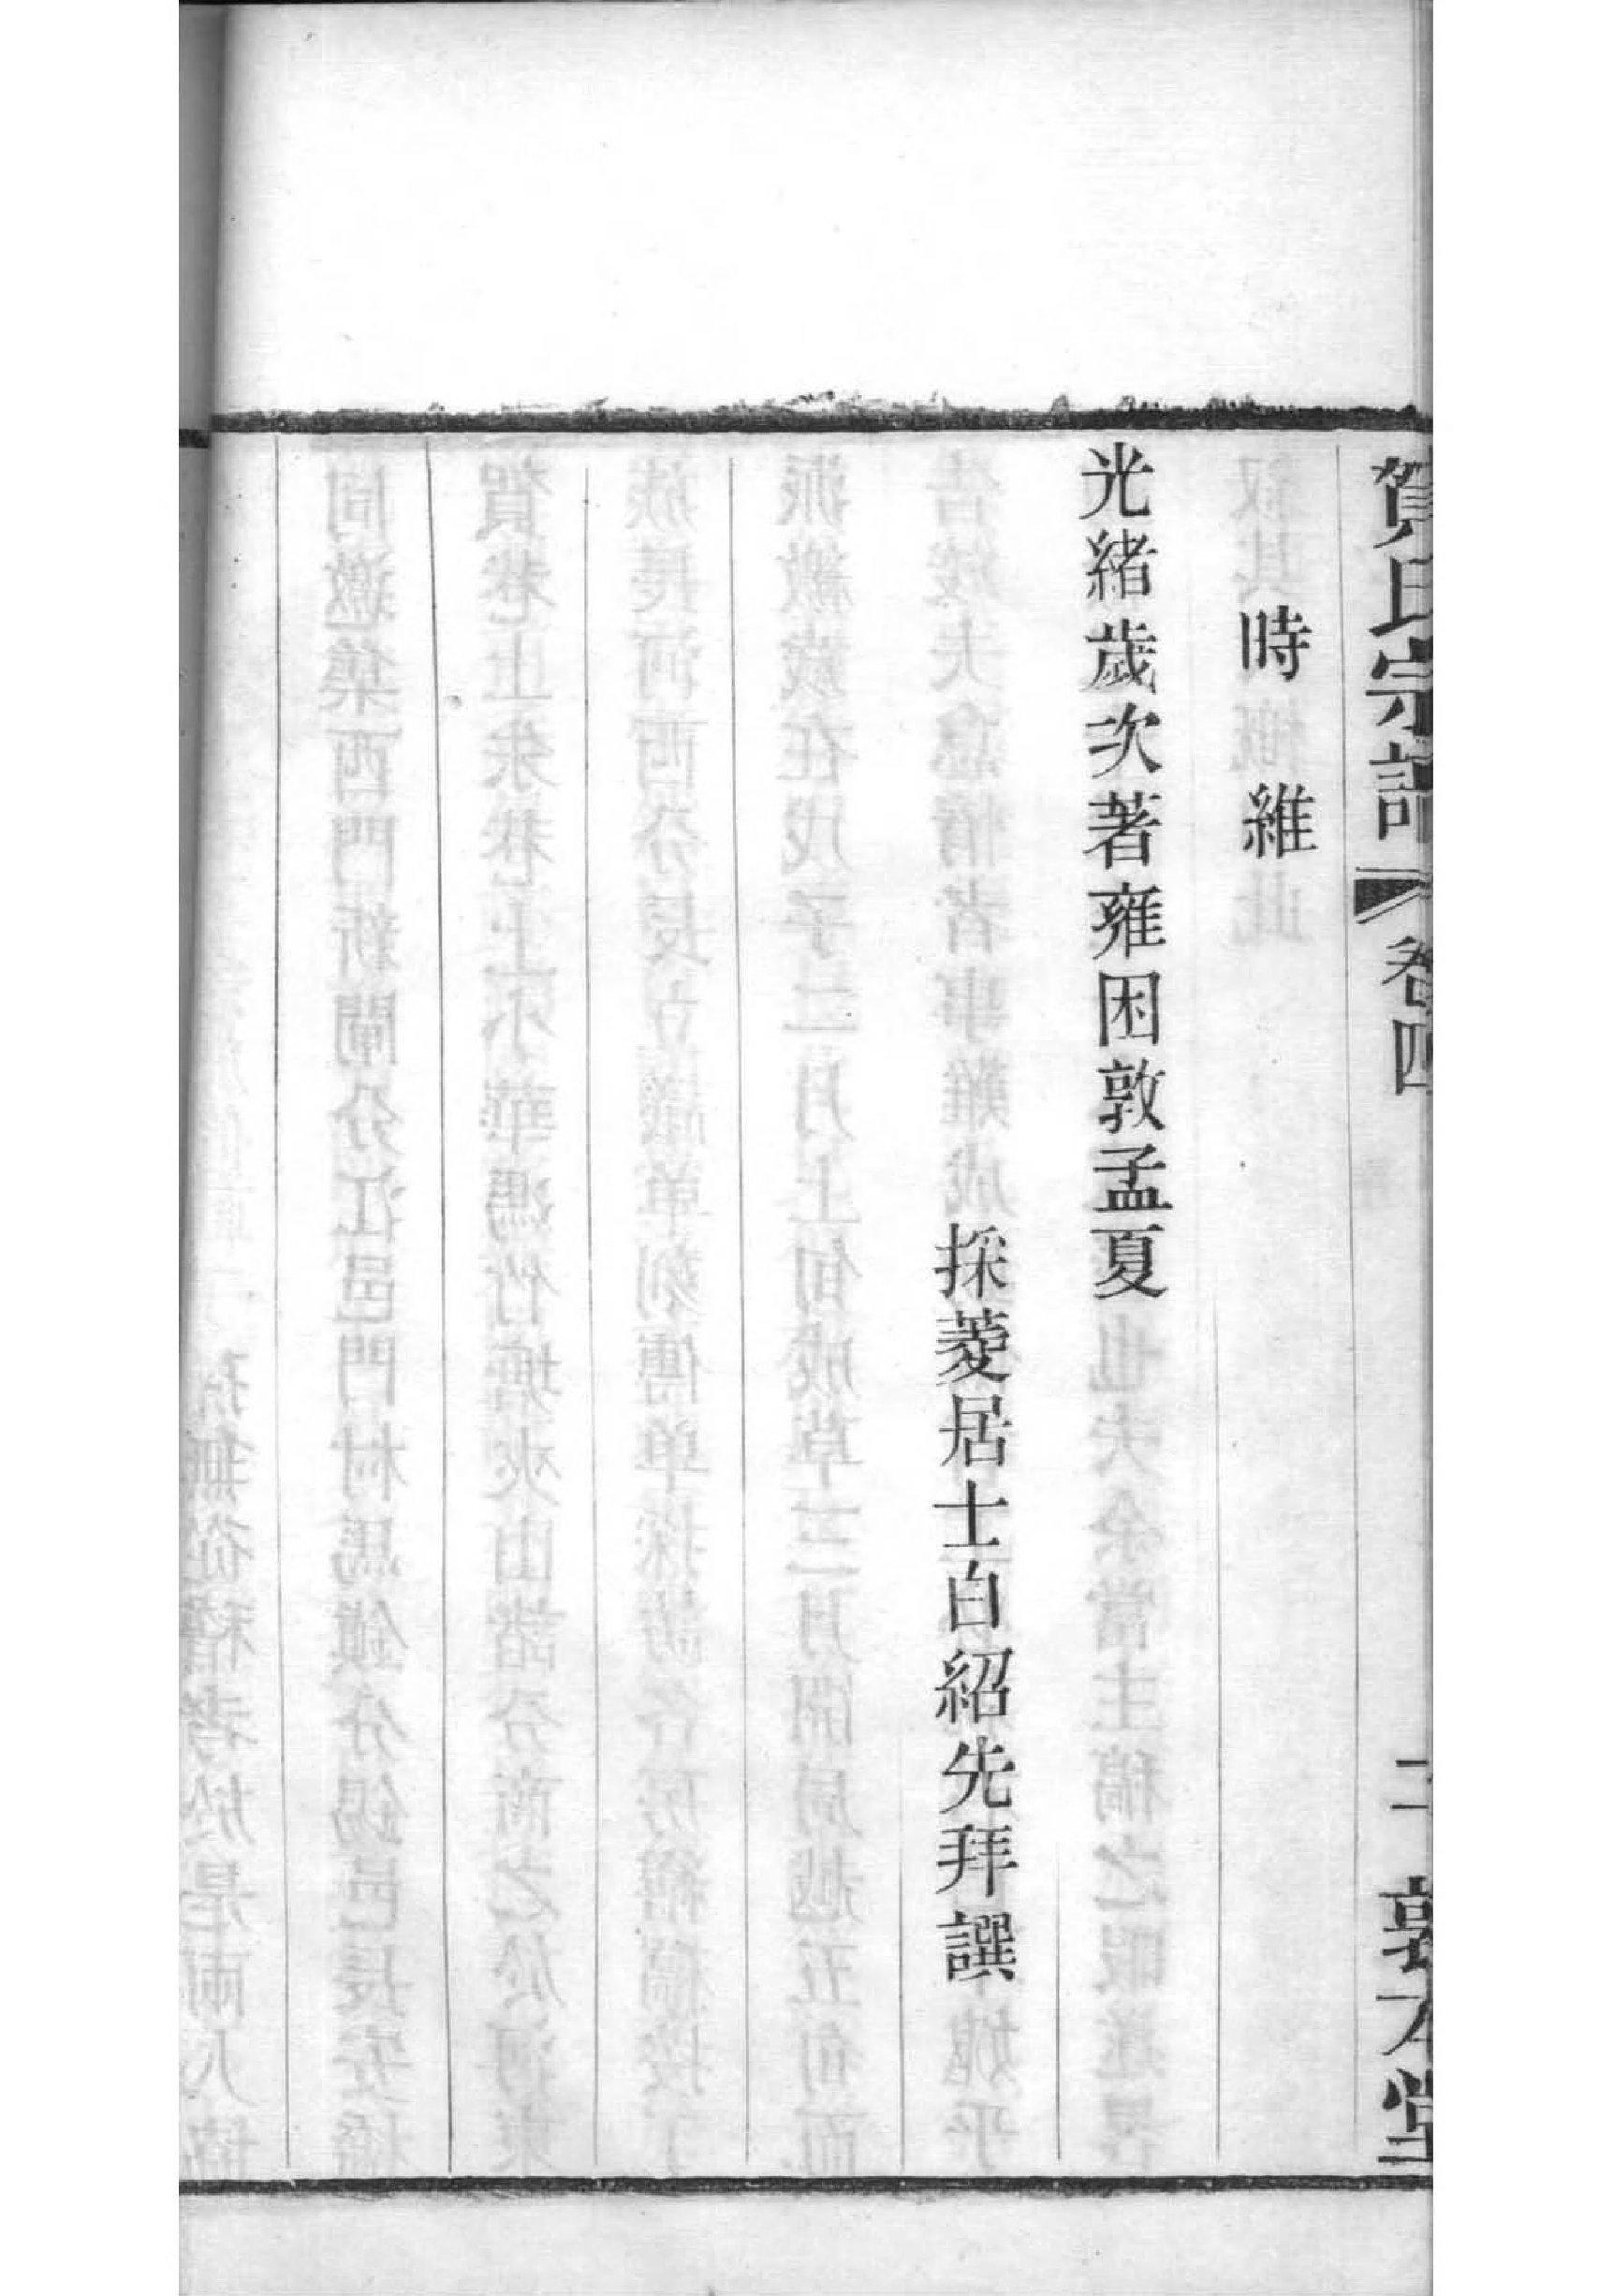 賀氏宗譜 卷四 二 敦本堂
時維
光緒歲次著雍困敦孟夏
採菱居士白紹先拜譔